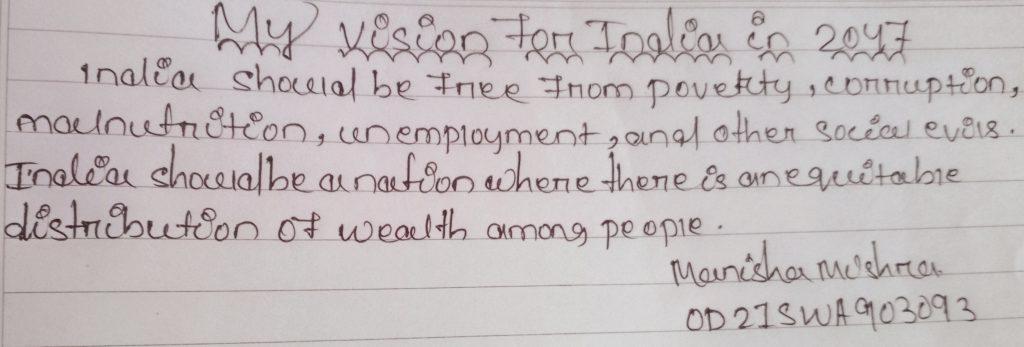 My vision for India in 2047
India should be free from poverty, corruption,
malnutrition, unemployment, and other social evils.
India should be a nation where there is an equitable
distribution of wealth among people.
Manisha Mishra
OD21SWA903093